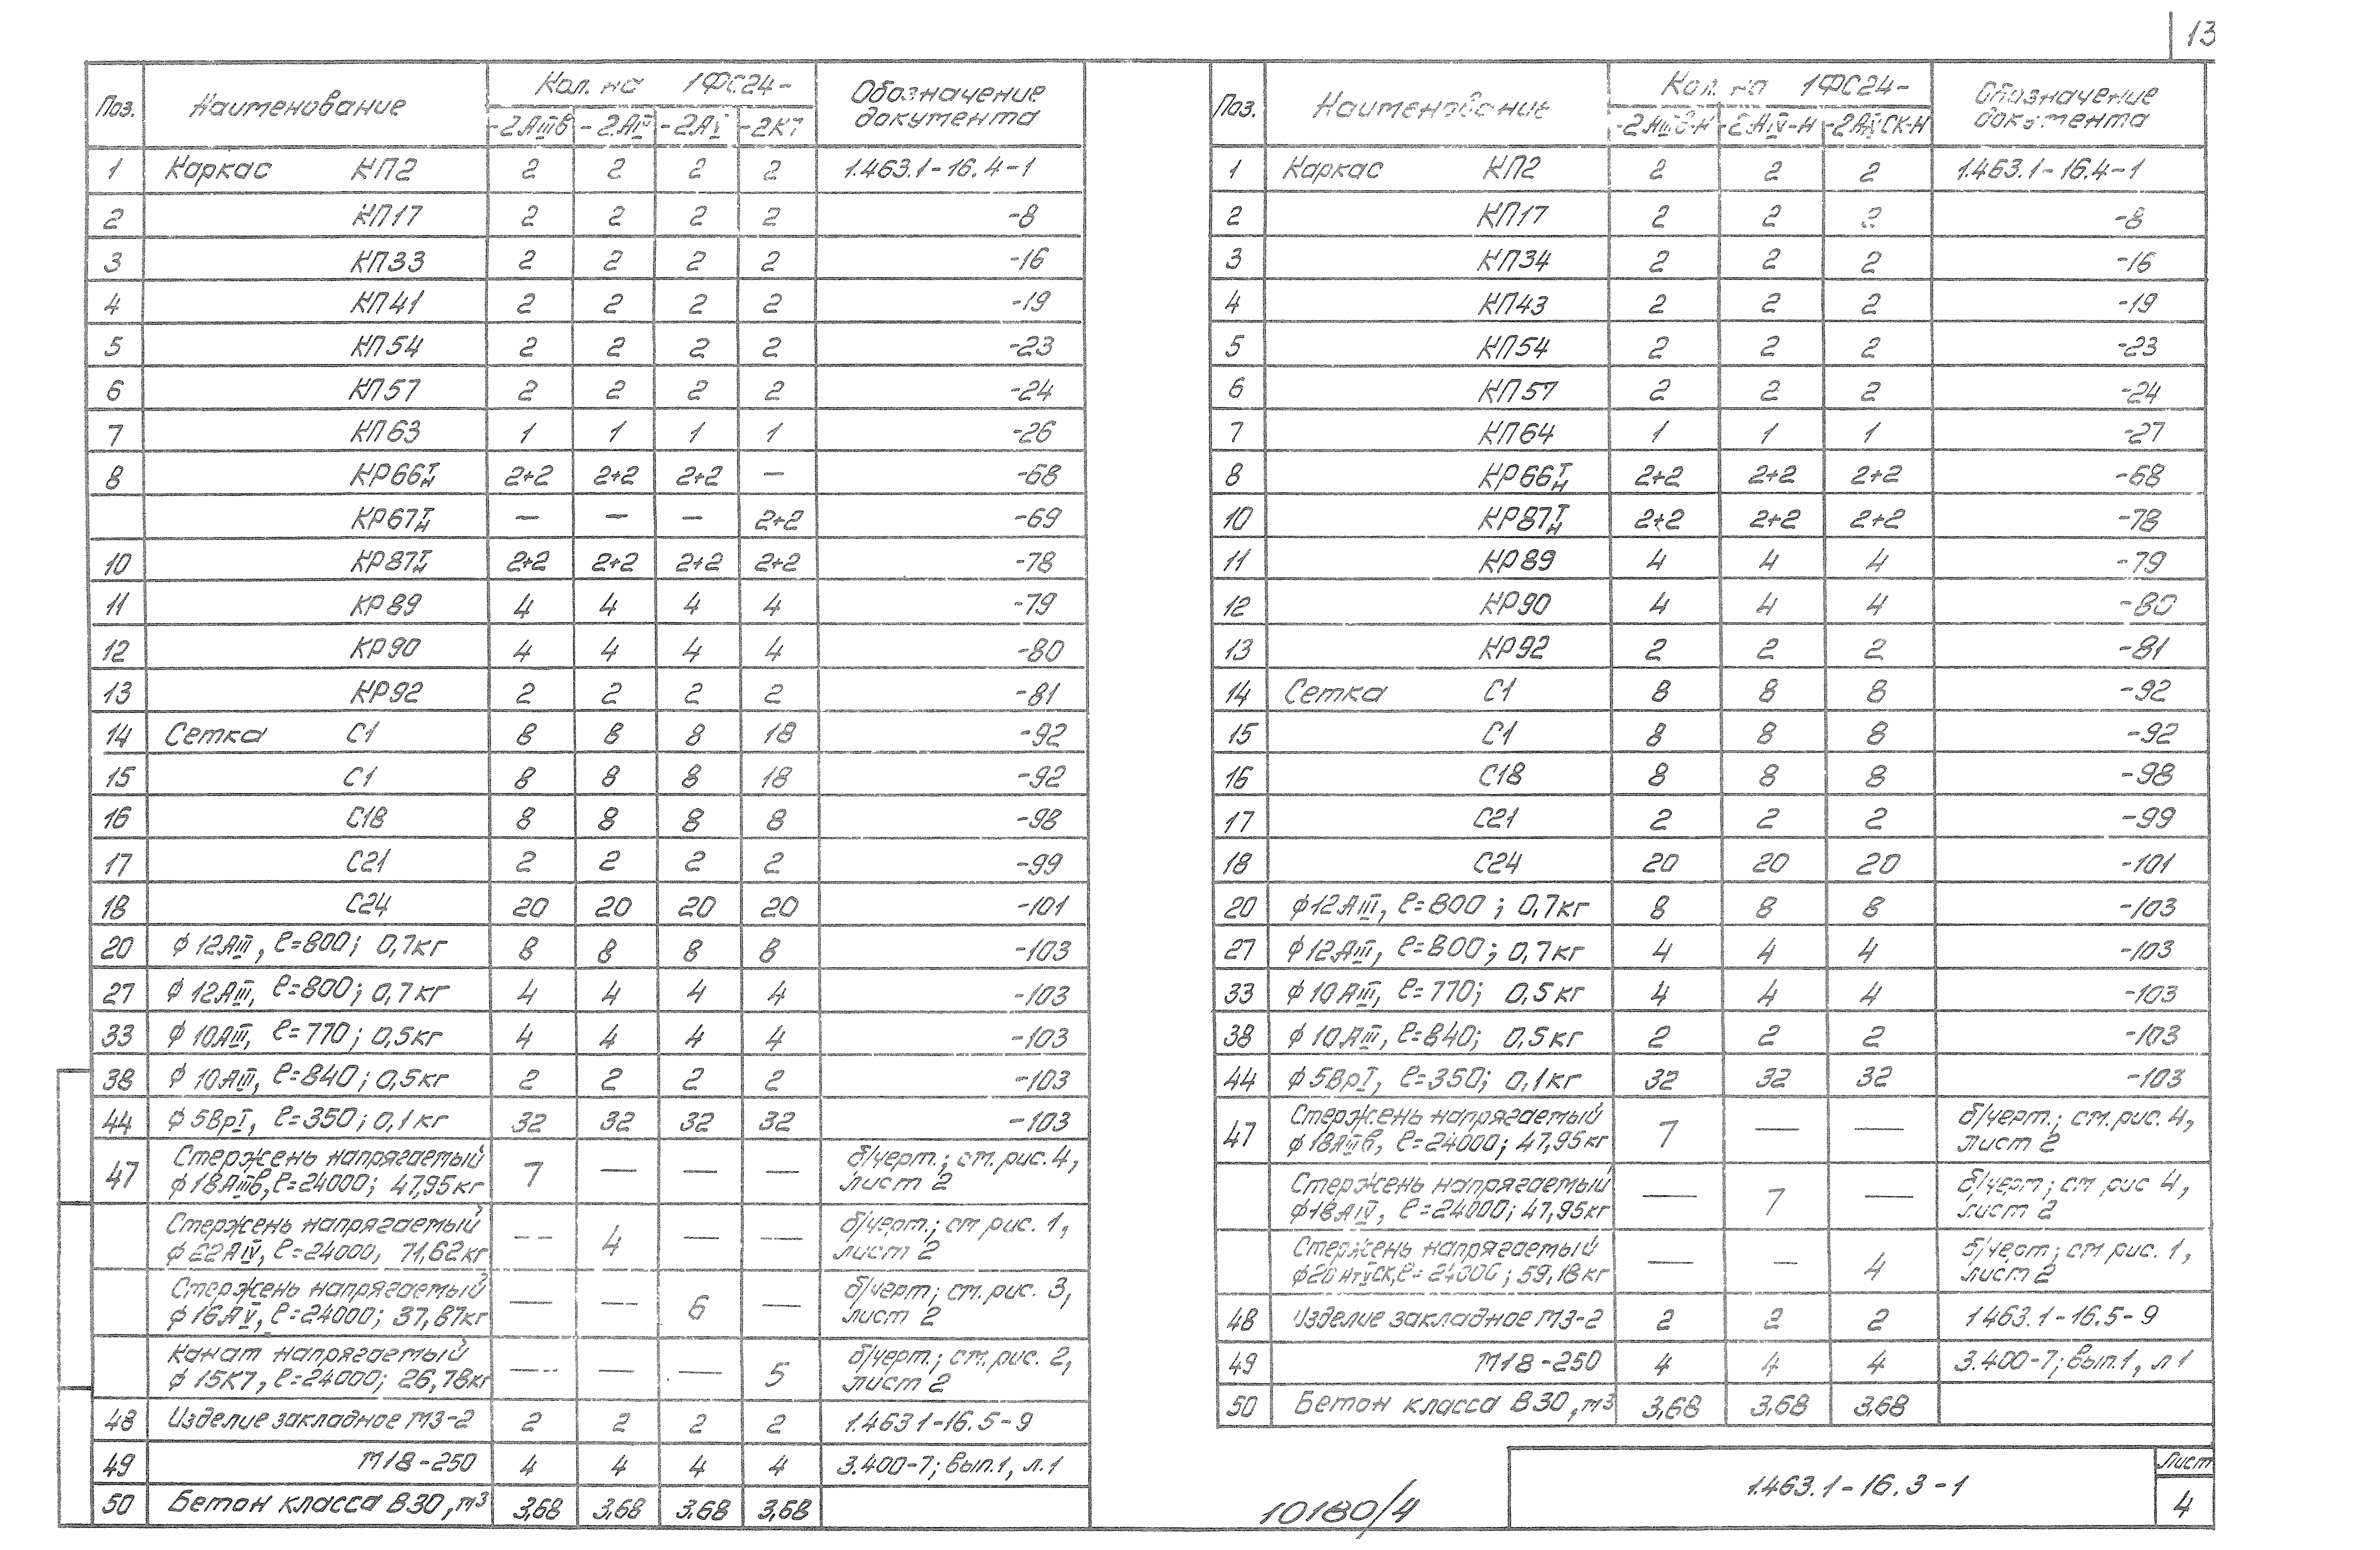 13
Поз. Наименование Кол. на 1ФС24- Обозначение документа
-2АIIIв -2АIV -2АV -2К7
1 Каркас КП2 2 2 2 2 1.463.1-16.4-1
2 КП17 2 2 2 2 -8
3 КП33 2 2 2 2 -16
4 КП41 2 2 2 2 -19
5 КП54 2 2 2 2 -23
6 КП57 2 2 2 2 -24
7 КП63 1 1 1 1 -26
8 КР66Т/Н 2+2 2+2 2+2 — -68
КР67Т/Н — — — 2+2 -69
10 КР87Т/Н 2+2 2+2 2+2 2+2 -78
11 КР89 4 4 4 4 -79
12 КР90 4 4 4 4 -80
13 КР92 2 2 2 2 -81
14 Сетка С1 8 8 8 18 -92
15 С1 8 8 8 18 -92
16 С18 8 8 8 8 -98
17 С21 2 2 2 2 -99
18 С24 20 20 20 20 -101
20 ϕ12АIII, ℓ=800; 0,7кг 8 8 8 8 -103
27 ϕ12АIII, ℓ=800; 0,7кг 4 4 4 4 -103
33 ϕ10АIII, ℓ=770; 0,5кг 4 4 4 4 -103
38 ϕ10АIII, ℓ=840; 0,5кг 2 2 2 2 -103
44 ϕ5ВрI, ℓ=350; 0,1кг 32 32 32 32 -103
47 Стержень напрягаемый ϕ18АIIIв, ℓ=24000; 47,95кг 7 — — — б/черт.; см. рис. 4, лист 2
Стержень напрягаемый ϕ22АIV, ℓ=24000, 71,62кг — 4 — — б/черт.; см рис. 1, лист 2
Стержень напрягаемый ϕ16АV, ℓ=24000; 37,87кг — — 6 — б/черт; см. рис. 3, лист 2
Канат напрягаемый ϕ15К7, ℓ=24000; 26,78кг — — — 5 б/черт.; см. рис. 2, лист 2
48 Изделие закладное МЗ-2 2 2 2 2 1.463 1-16.5-9
49 М18-250 4 4 4 4 3.400-7; вып.1, л.1
50 Бетон класса В30, м³ 3,68 3,68 3.68 3,68
Поз. Наименование Кол. на 1ФС24- Обозначение документа
-2АIIIв-Н -2АIV-Н -2АVСК-Н
1 Каркас КП2 2 2 2 1.463.1-16.4-1
2 КП17 2 2 2 -8
3 КП34 2 2 2 -16
4 КП43 2 2 2 -19
5 КП54 2 2 2 -23
6 КП57 2 2 2 -24
7 КП64 1 1 1 -27
8 КР66Т/Н 2+2 2+2 2+2 -68
10 КР87Т/Н 2+2 2+2 2+2 -78
11 КР89 4 4 4 -79
12 КР90 4 4 4 -80
13 КР92 2 2 2 -81
14 Сетка С1 8 8 8 -92
15 С1 8 8 8 -92
16 С18 8 8 8 -98
17 С21 2 2 2 -99
18 С24 20 20 20 -101
20 ϕ12АIII, ℓ=800; 0,7кг 8 8 8 -103
27 ϕ12АIII, ℓ=800; 0,7кг 4 4 4 -103
33 ϕ10АIII, ℓ=770; 0,5кг 4 4 4 -103
38 ϕ10АIII, ℓ=840; 0,5кг 2 2 2 -103
44 ϕ5ВрI, ℓ=350; 0,1кг 32 32 32 -103
47 Стержень напрягаемый ϕ18АIIIв, ℓ=24000; 47,95кг 7 — — б/черт.; см. рис. 4, лист 2
Стержень напрягаемый ϕ18АIV, ℓ=24000; 47,95кг — 7 — б/черт; см рис 4, лист 2
Стержень напрягаемый ℓ=24000; 59,18кг — — 4 б/черт; см рис. 1, лист 2
48 Изделие закладное МЗ-2 2 2 2 1 463.1-16.5-9
49 М18-250 4 4 4 3.400-7; вып.1, л 1
50 Бетон класса В30, м³ 3,68 3,68 3,68
10180/4
1.463.1-16.3-1
Лист
4